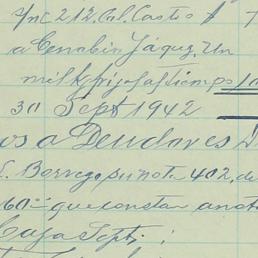 Fnc 212. Col. Castro
a Cenobio Jáquez, Un
mil k frijol
30 Sept 1942
os a Deudores
Borrego su nota 402, de
60 que constan anot
Caja Septi: